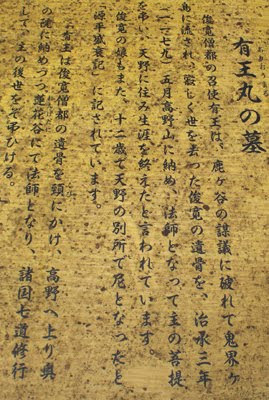 有王丸の墓
俊寛僧都の召使有王は、鹿ヶ谷の謀議に破れて鬼界ヶ
島に流され、寂しく世を去った俊寛の遺骨を、治承三年
(一一七九)五月高野山に納め、法師となって主の菩提
を弔い、天野に住み生涯を終えたと言われています。
俊寛の娘もまた、十二歳で天野の別所で尼となったと
「源平盛衰記」に記されています。
有王は俊寛僧都の遺骨を頸にかけ、高野へ上り奥
の院に納めつつ蓮花谷にて法師となり、諸国七道修行
して、主の後世をぞ弔ひける。」